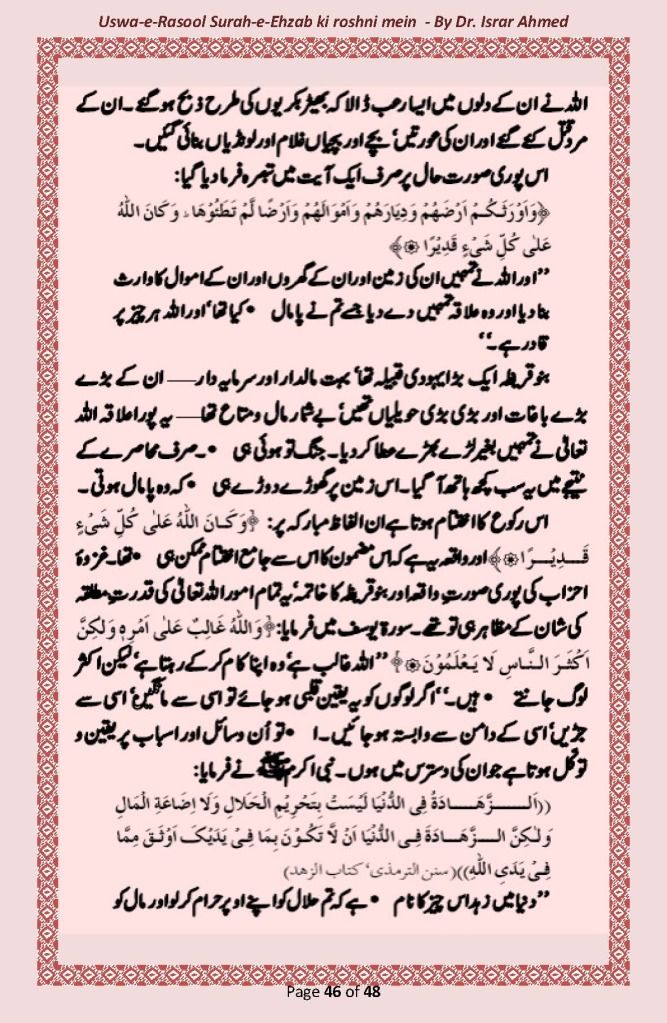 Uswa-e-Rasool Surah-e-Ehzab ki roshni mein - By Dr. Israr Ahmed
اللہ نے ان کے دلوں میں ایسا رعب ڈالا کہ بھیڑ بکریوں کی طرح ذبح ہو گئے۔ ان کے
مرد قتل کئے گئے اور ان کی عورتیں، بچے اور بچیاں غلام اور لونڈیاں بنائی گئیں۔
اس پوری صورت حال پر صرف ایک آیت میں تبصرہ فرما دیا گیا:
﴿وَاَوْرَثَكُمْ اَرْضَهُمْ وَدِيَارَهُمْ وَاَمْوَالَهُمْ وَاَرْضًا لَّمْ تَطَئُوْهَا ۭ وَكَانَ اللّٰهُ
عَلٰى كُلِّ شَيْءٍ قَدِيْرًا ۞﴾
’’اور اللہ نے تمہیں ان کی زمین اور ان کے گھروں اور ان کے اموال کا وارث
بنا دیا اور وہ علاقہ تمہیں دے دیا جسے تم نے پامال • کیا تھا، اور اللہ ہر چیز پر
قادر ہے۔‘‘
بنو قریظہ ایک بڑا یہودی قبیلہ تھا، بہت مالدار اور سرمایہ دار — ان کے بڑے
بڑے باغات اور بڑی بڑی حویلیاں تھیں، بے شمار مال و متاع تھا — یہ پورا علاقہ اللہ
تعالیٰ نے تمہیں بغیر لڑے بھڑے عطا کر دیا۔ جنگ تو ہوئی ہی •۔ صرف محاصرے کے
نتیجے میں یہ سب کچھ ہاتھ آ گیا۔ اس زمین پر گھوڑے دوڑے ہی • کہ وہ پامال ہوتی۔
اس رکوع کا اختتام ہوتا ہے ان الفاظ مبارکہ پر: ﴿وَكَانَ اللّٰهُ عَلٰى كُلِّ شَيْءٍ
قَدِيْرًا ۞﴾ اور واقعہ یہ ہے کہ اس مضمون کا اس سے جامع اختتام ممکن ہی • تھا۔ غزوۂ
احزاب کی پوری صورتِ واقعہ اور بنو قریظہ کا خاتمہ، یہ تمام امور اللہ تعالیٰ کی قدرتِ مطلقہ
کی شان کے مظاہر ہی تو تھے۔ سورۂ یوسف میں فرمایا: ﴿وَاللّٰهُ غَالِبٌ عَلٰى اَمْرِهٖ وَلٰكِنَّ
اَكْثَرَ النَّاسِ لَا يَعْلَمُوْنَ ۞﴾ ’’اللہ غالب ہے، وہ اپنا کام کر کے رہتا ہے، لیکن اکثر
لوگ جانتے • ہیں۔‘‘ اگر لوگوں کو یہ یقین قلبی ہو جائے تو اسی سے مانگیں، اسی سے
جڑیں، اسی کے دامن سے وابستہ ہو جائیں۔ ا • تو اُن وسائل اور اسباب پر یقین و
توکل ہوتا ہے جو ان کی دسترس میں ہوں۔ نبی اکرم ﷺ نے فرمایا:
((اَلزَّهَادَةُ فِي الدُّنْيَا لَيْسَتْ بِتَحْرِيْمِ الْحَلَالِ وَلَا اِضَاعَةِ الْمَالِ
وَلٰكِنَّ الزَّهَادَةَ فِي الدُّنْيَا اَنْ لَّا تَكُوْنَ بِمَا فِيْ يَدَيْكَ اَوْثَقَ مِمَّا
فِيْ يَدَيِ اللّٰهِ)) (سنن الترمذی، کتاب الزهد)
’’دنیا میں زہد اس چیز کا نام • ہے کہ تم حلال کو اپنے اوپر حرام کر لو اور مال کو
Page 46 of 48